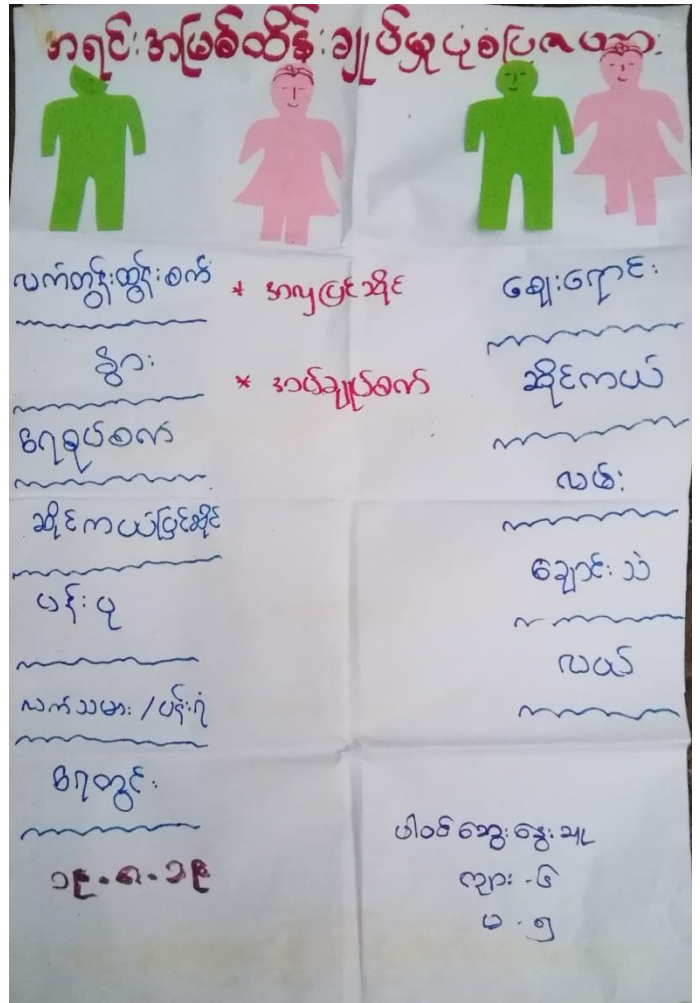 အရင်းအမြစ်ထိန်းချုပ်မှုပုံစံပြဇယား
လက်တွန်းထွန်စက်
နွား
ရေစုပ်စက်
ဆိုင်ကယ်ပြင်ဆိုင်
ပန်းပု
လက်သမား/ပန်းရံ
ရေတွင်း
၁၉.၈.၁၉
* အလှပြင်ဆိုင်
* အပ်ချုပ်စက်
ဈေးရောင်း
ဆိုင်ကယ်
လမ်း
ချောင်းသဲ
လယ်
ပါဝင်ဆွေးနွေးသူ
ကျား - ၆
မ - ၅